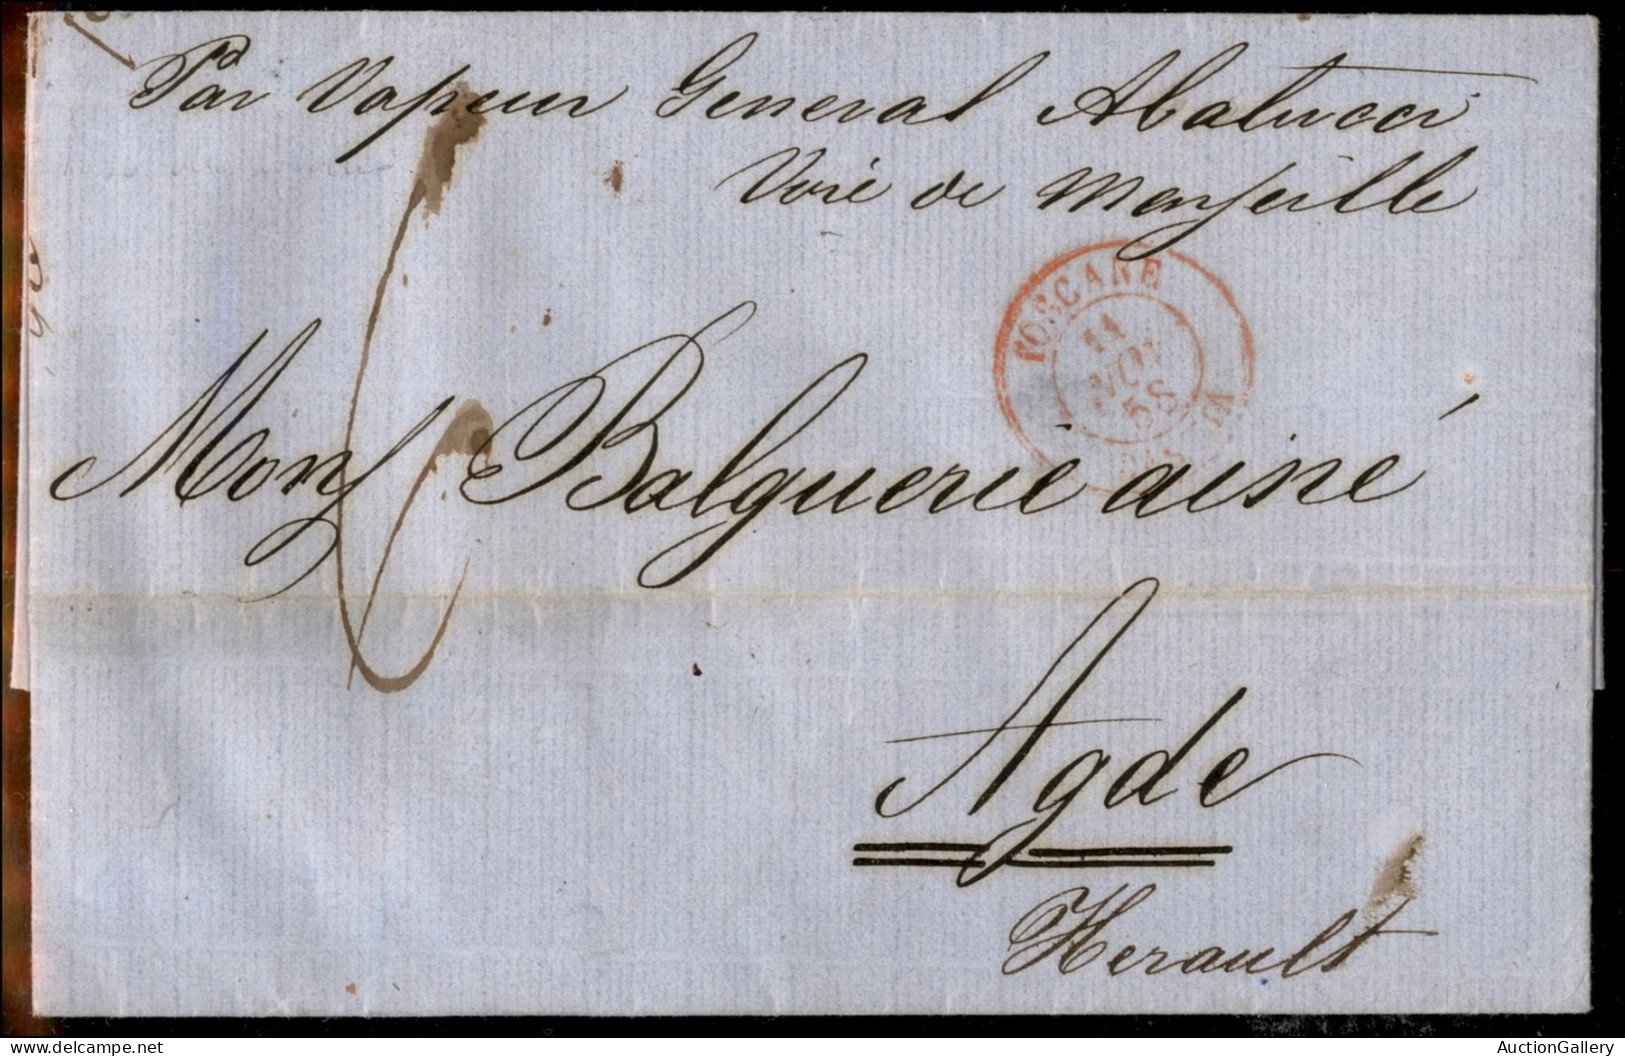 Par Vapeur General Abatucci
Voie de Marseille
TOSCANE
11
NOV
58
Mons Balguerie ainé
Agde
Herault
AuctionGallery